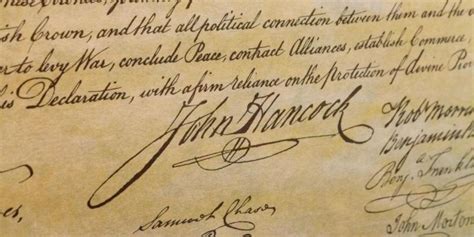 ish Crown, and that all political connection between them and the
er to levy War, conclude Peace, contract Alliances, establish Commerce,
is Declaration, with a firm reliance on the protection of divine Prov
John Hancock
Rob Morris
Benjamin
Benj. Franklin
John Morton
Samuel Chase